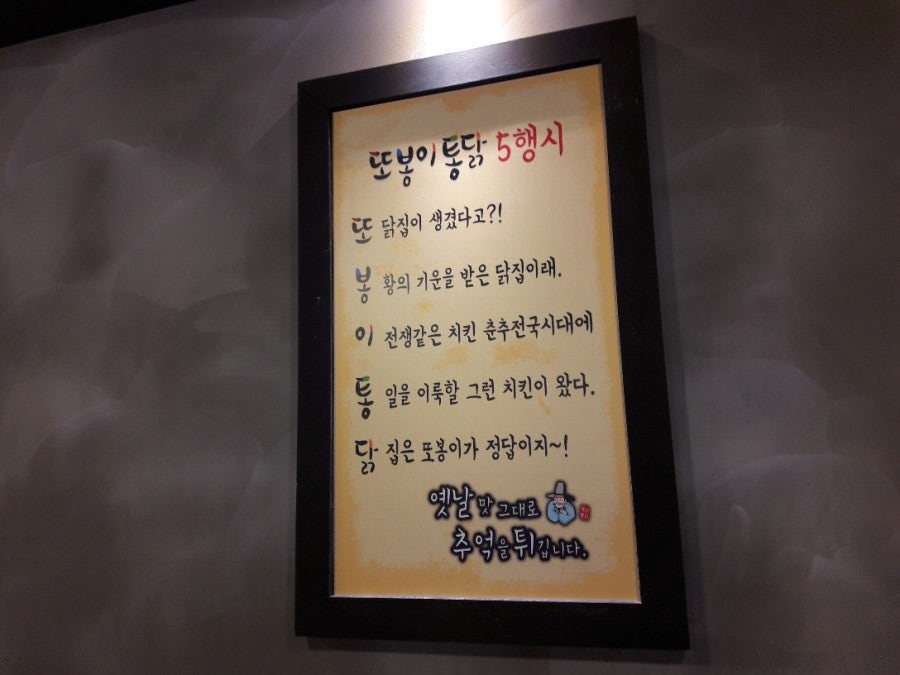 또봉이통닭 5행시
또 닭집이 생겼다고?!
봉 황의 기운을 받은 닭집이래.
이 전쟁같은 치킨 춘추전국시대에
통 일을 이룩할 그런 치킨이 왔다.
닭 집은 또봉이가 정답이지~!
옛날 맛 그대로
추억을 튀깁니다.